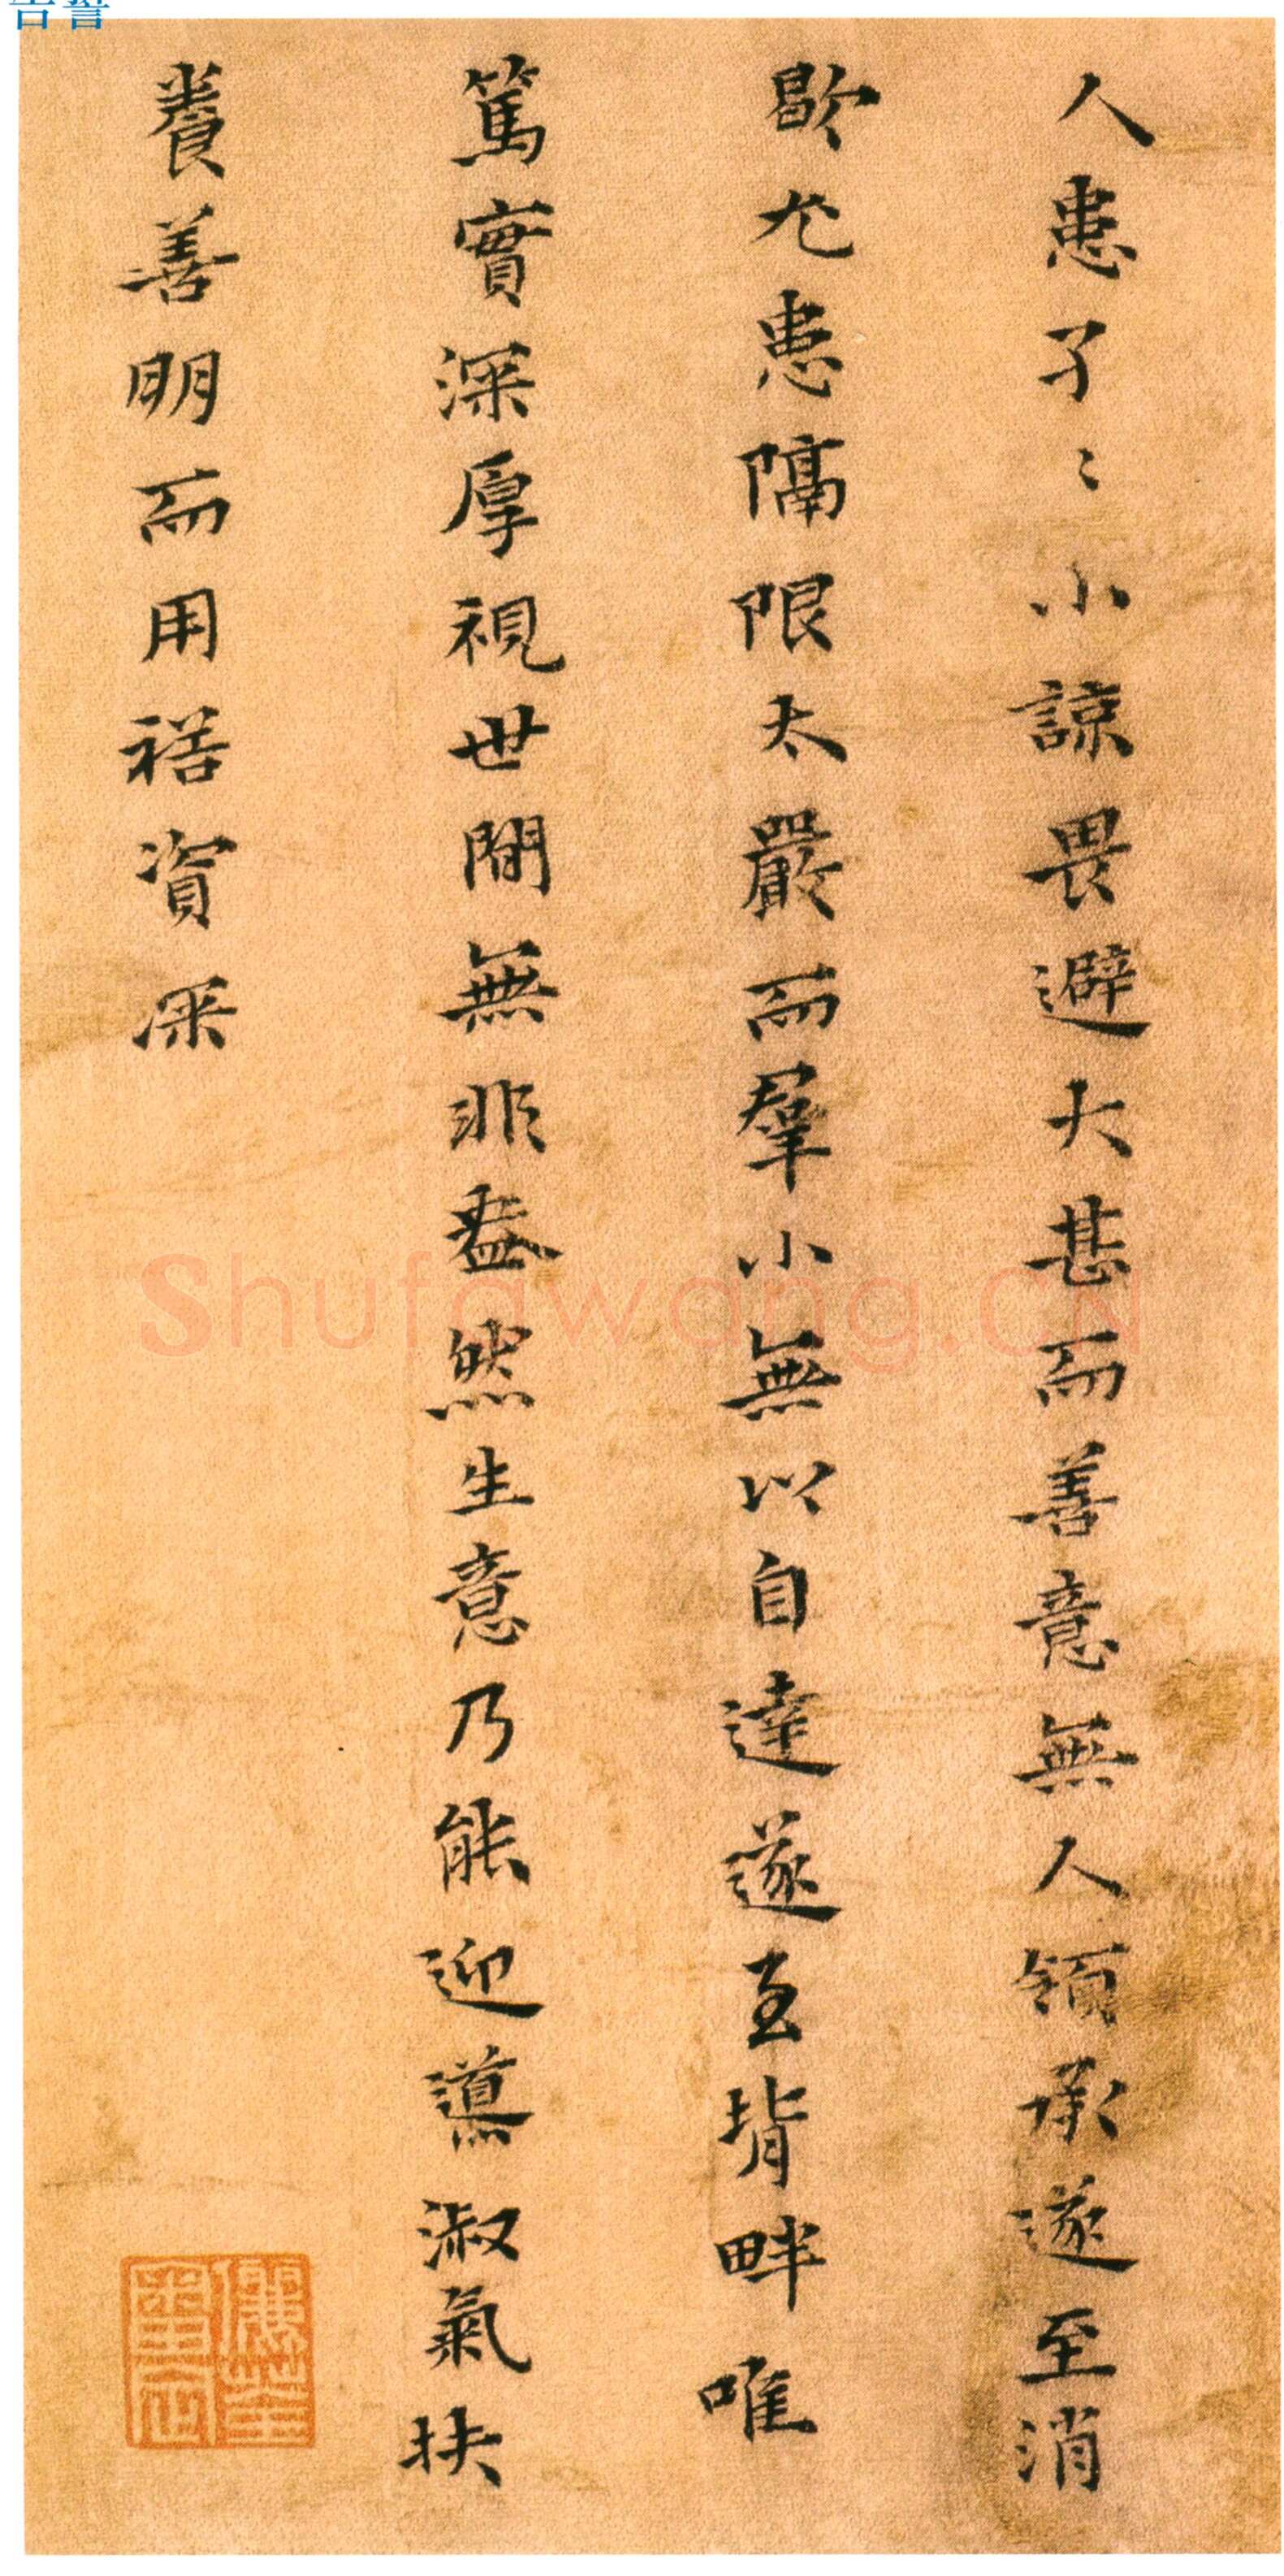 告誓
人患孑〻小諒畏避大甚而善意無人領承遂至消
歇尤患隔限太嚴而羣小無以自達遂至揹畔唯
篤實深厚視世間無非盎然生意乃能迎導淑氣扶
養善明而用禧資深
Shufawang.CN